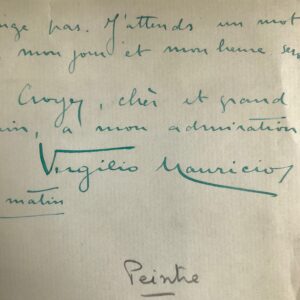 nge pas. J'attends un mot
mon jour et mon heure ser
Croyez, cher et grand
à mon admiration
Virgilio Mauricio
matin
Peintre